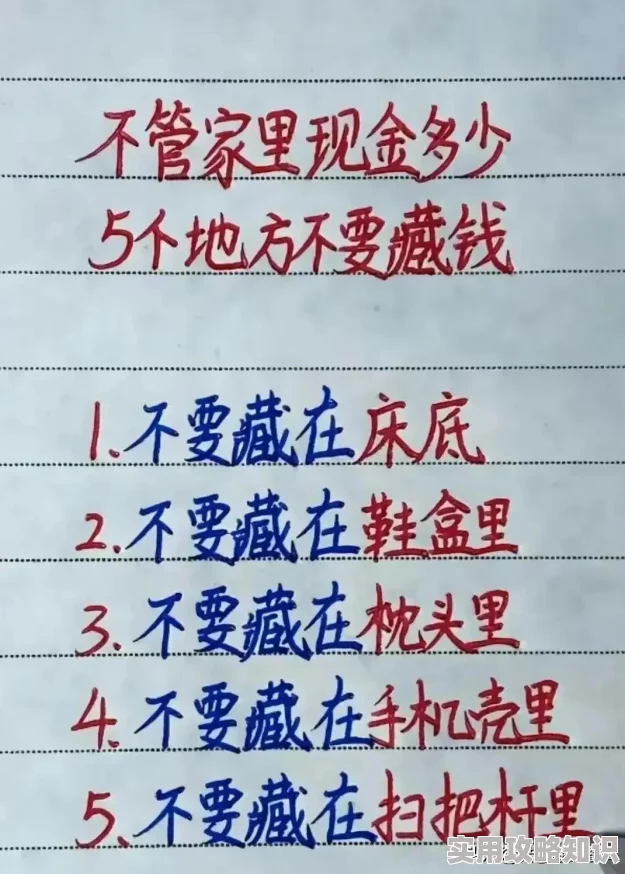 不管家里现金多少
5个地方不要藏钱
1.不要藏在床底
2.不要藏在鞋盒里
3.不要藏在枕头里
4.不要藏在手机壳里
5.不要藏在扫把杆里
实用攻略知识